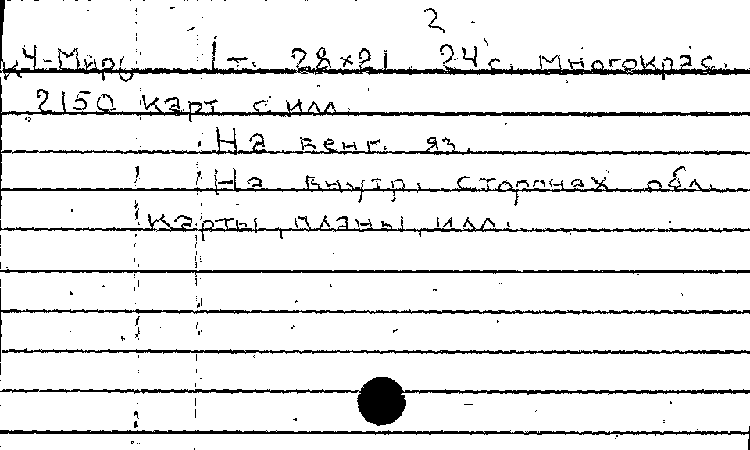 2
к4-Миру 1т. 28×21 24 с. многокрас.
2150 карт с илл.
На венг. яз.
На внутр. сторонах обл.
карты, планы, илл.